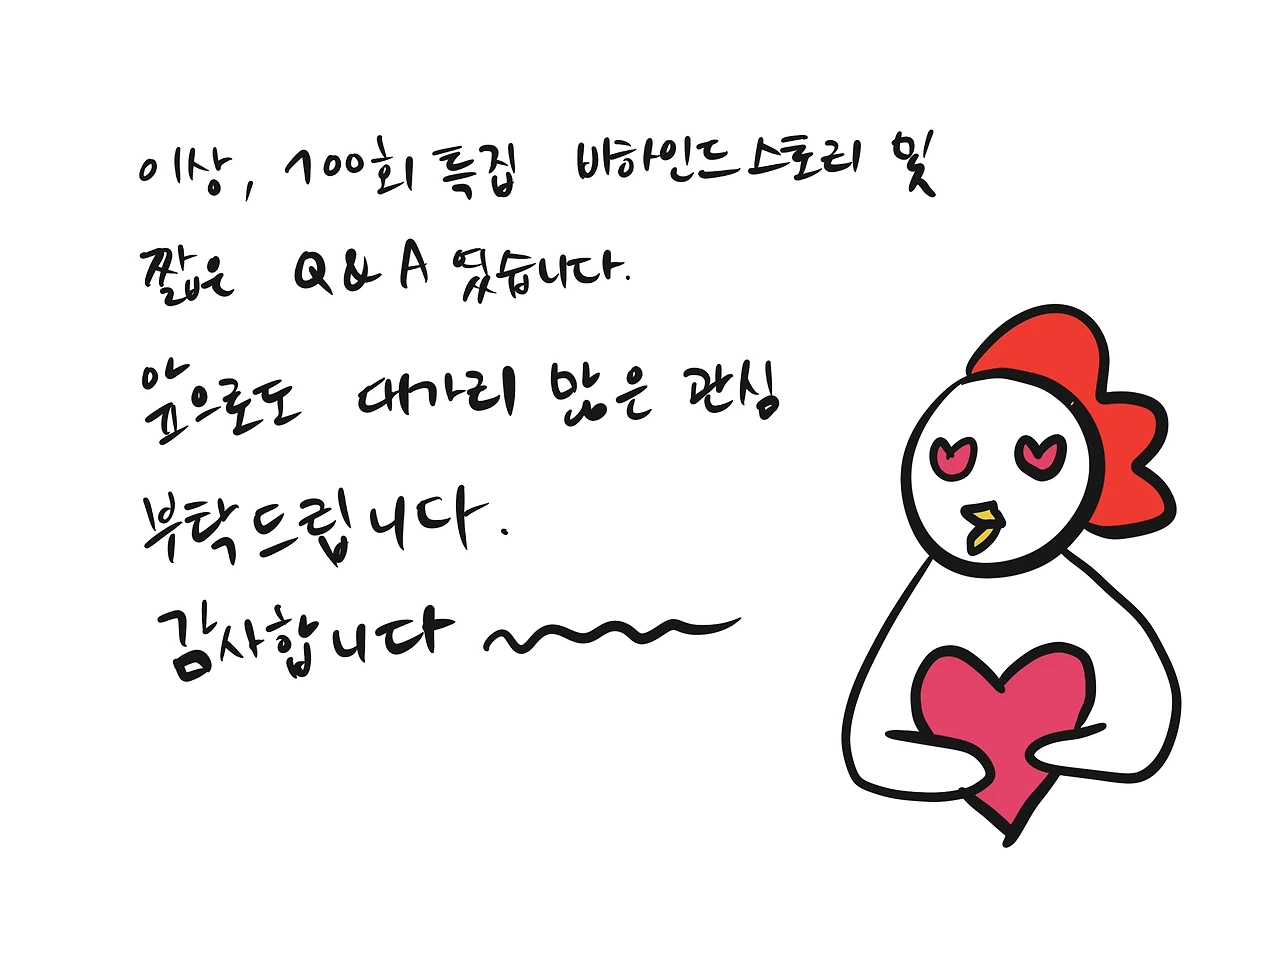 이상, 100회 특집 바하인드 스토리 및
짧은 Q & A 였습니다.
앞으로도 대가리 많은 관심
부탁드립니다.
감사합니다